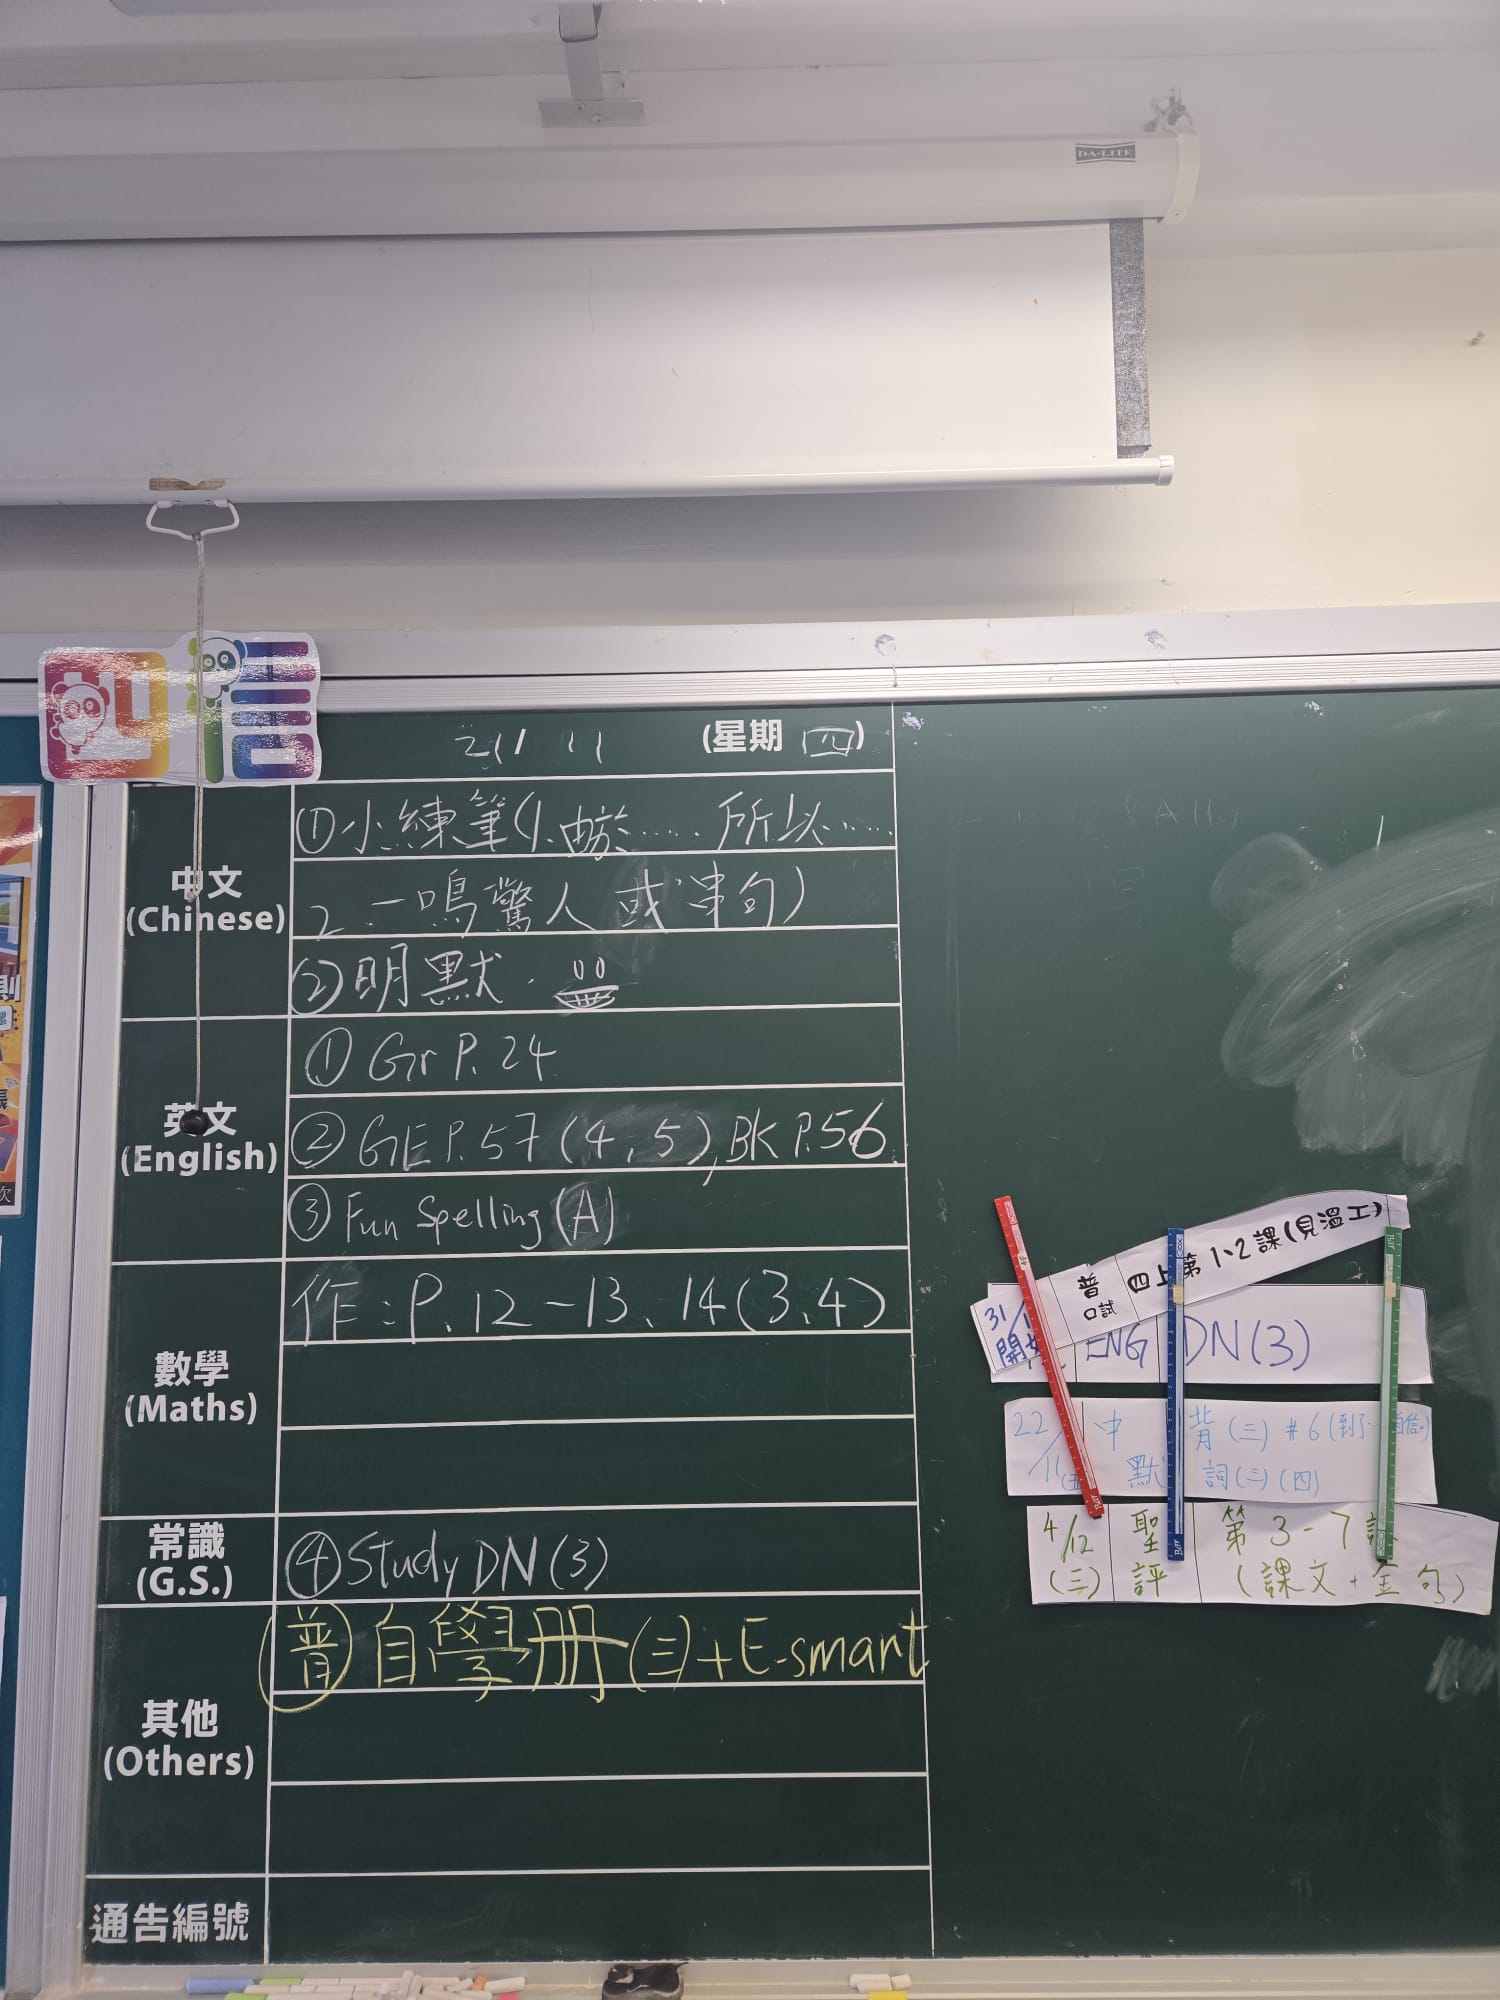 DA-LITE
四信
21/11 (星期四)
中文
(Chinese)
①小練筆(1.由於……所以……
2.一鳴驚人或串句)
②明默.
英文
(English)
① Gr P.24
② GE P.57 (4,5), BK P.56
③ Fun Spelling (A)
數學
(Maths)
作:P.12-13、14(3、4)
常識
(G.S.)
④ Study DN (3)
其他
(Others)
普 自學册(三)+E-smart
通告編號
31/1 普 四上第1、2課(見溫工)
口試
開始
ENG DN(3)
22/11(五) 中 背(三)#6(到了…自信)
默 詞(三)(四)
4/12 聖 第3-7課
(三) 評 (課文+金句)